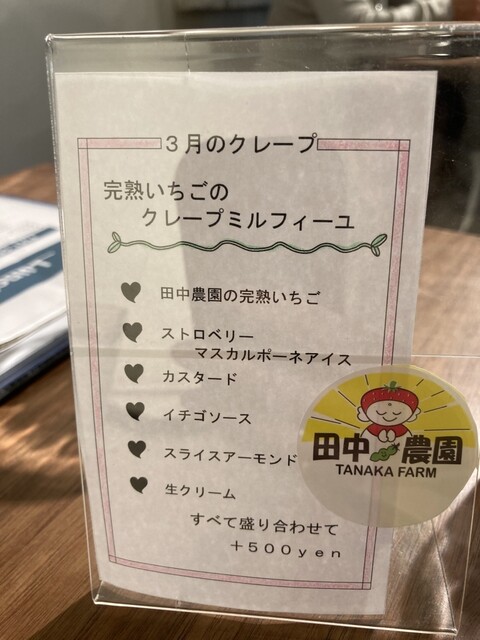 3月のクレープ
完熟いちごの
クレープミルフィーユ
田中農園の完熟いちご
ストロベリー
マスカルポーネアイス
カスタード
イチゴソース
スライスアーモンド
生クリーム
すべて盛り合わせて
+500yen
田中農園
TANAKA FARM